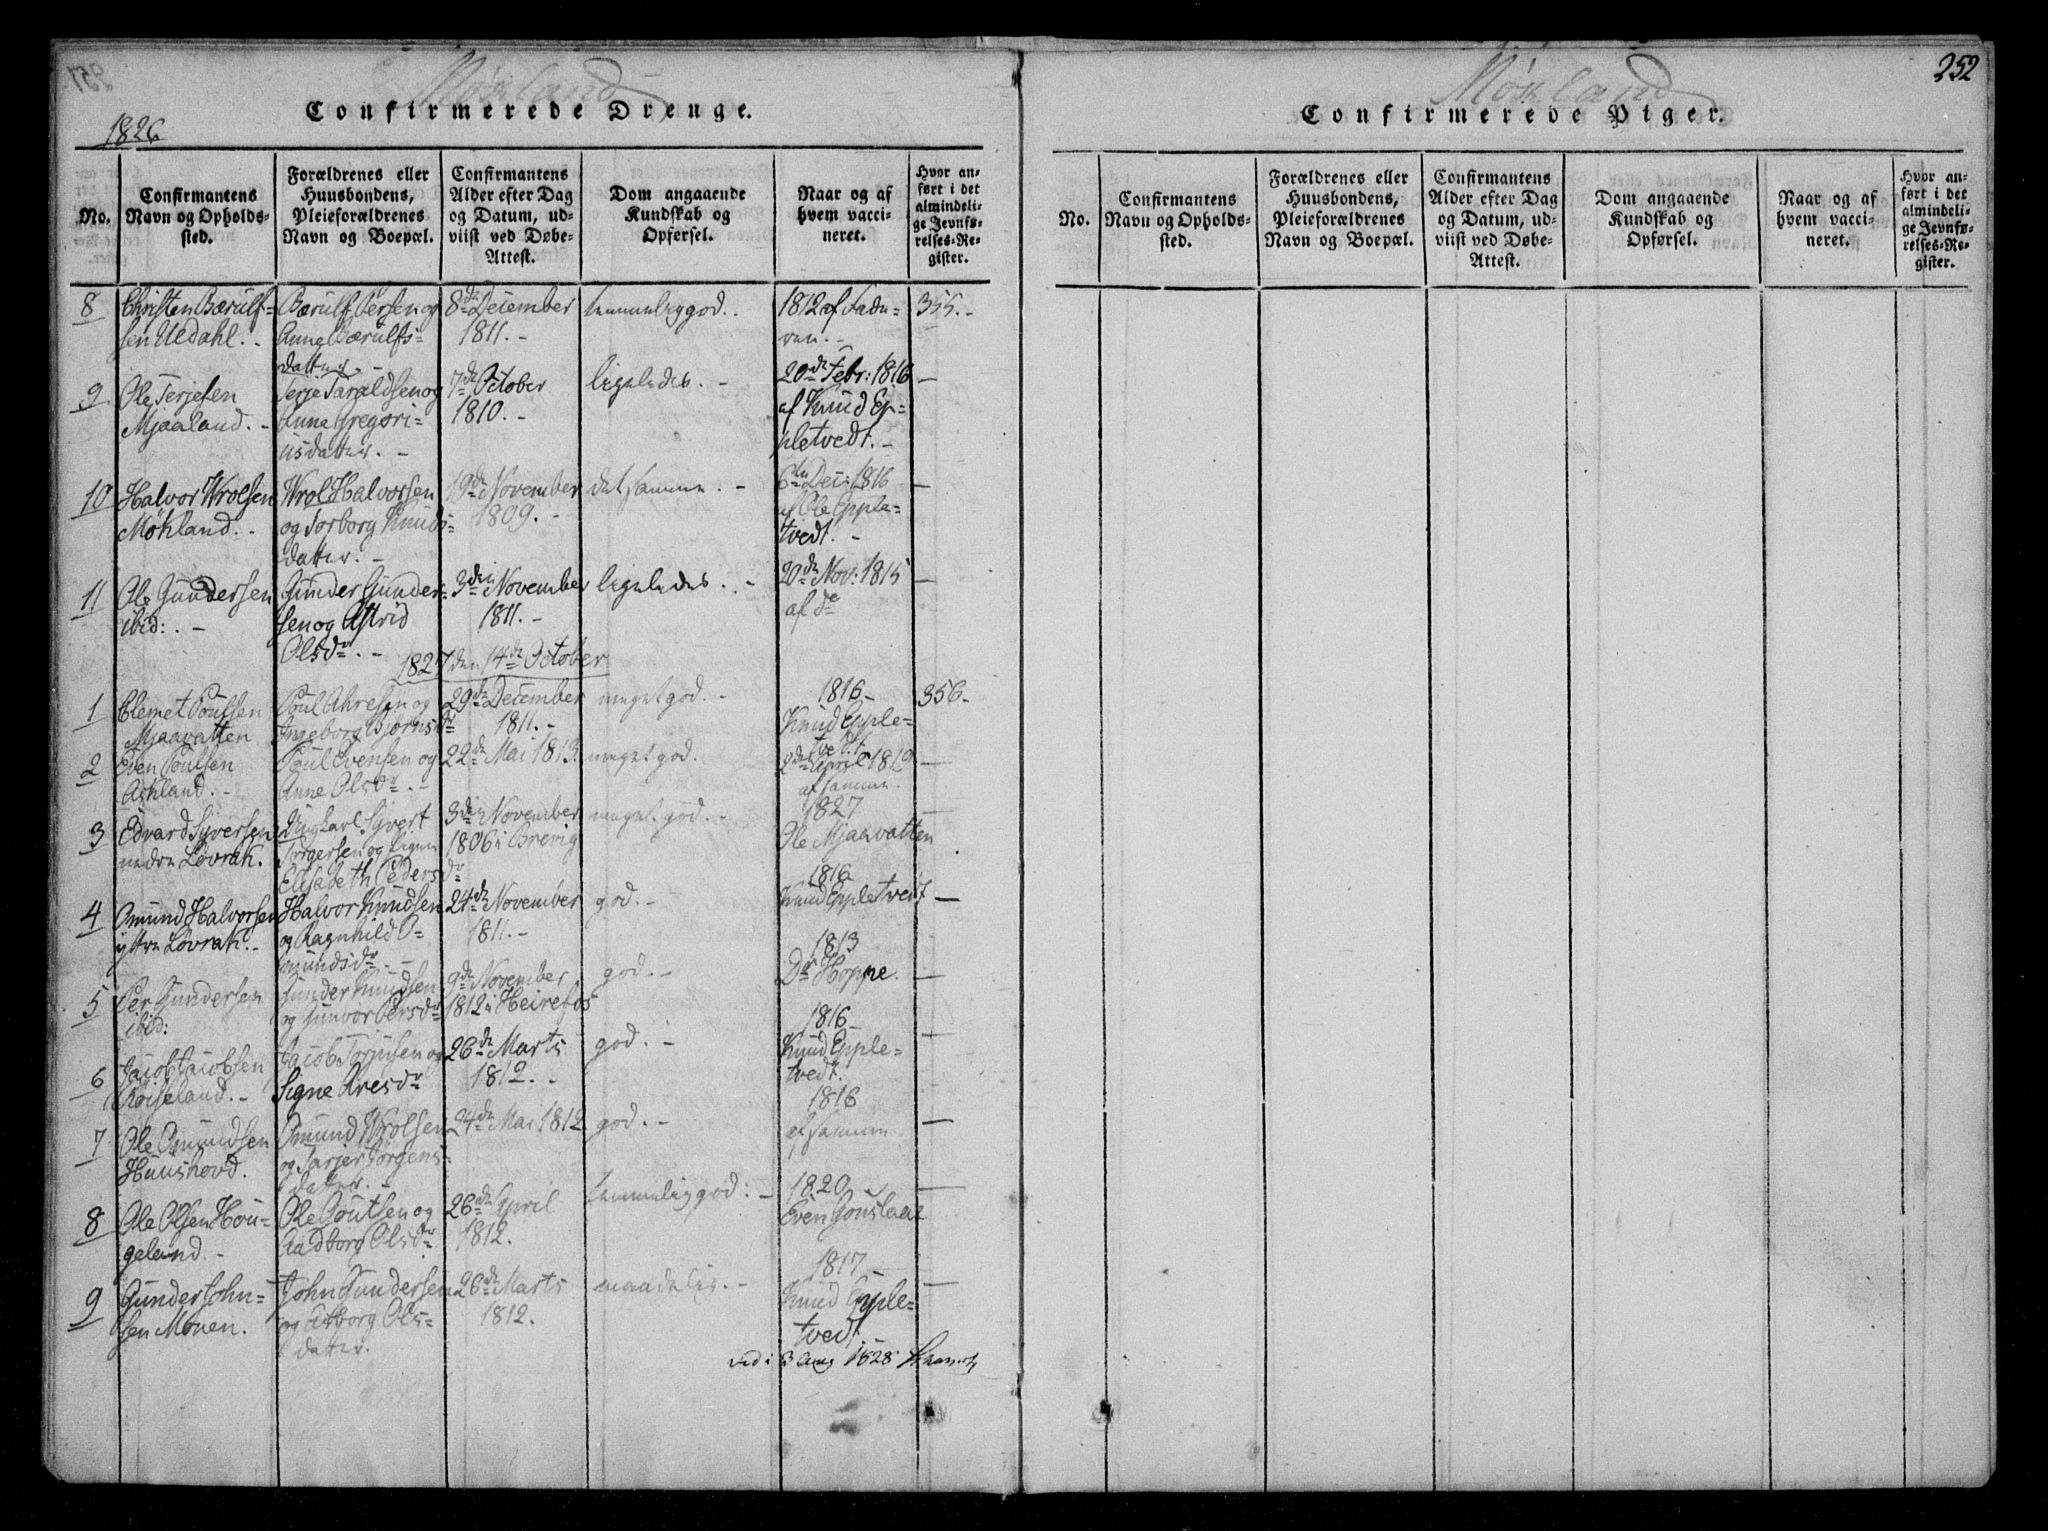 Møkland
Confirmerede Drenge.
1826
No.
Confirmantens
Navn og Opholds-
sted.
Forældrenes eller
Huusbondens,
Pleieforældrenes
Navn og Boepæl.
Confirmantens
Alder efter Dag
og Datum, ud-
viist ved Døbe-
Attest.
Dom angaaende
Kundskab og
Opførsel.
Naar og af
hvem vacci-
neret.
Hvor an-
ført i det
almindeli-
ge Jevnfø-
relses-Re-
gister.
8
Christen Bærulf-
sen Uldahl. -
Bærulf Persen og
Anne Bærulfs-
datter. -
8de December
1811. -
temmelig god. .
1812 af Fade-
ren. -
355. -
9
Ole Terjesen
Mjaaland. -
Terje Taraldsen og
Anne Gregori-
usdatter. -
7de October
1810. -
ligeledes. -
20de Febr: 1816
af Knud Ep-
pletvedt. -
—
10
Halvor Wrolsen
Møkland. -
Wrol Halvorsen
og Torborg Knuds-
datter. -
19de November
1809. -
det samme. -
6te Dec: 1816
af Ole Epple-
tvedt. -
—
11
Ole Gundersen
ibid: . -
Gunder Gunder-
sen og Astrid
Olsdr. -
3die November
1811. -
ligeledes. . -
20de Nov: 1815
af de
—
1827 den 14de October
1
Clemet Poulsen
Mjaavatten
Poul Ahresen og
Ingeborg Bjørnsdr
29de December
1811. -
meget god. -
1816 -
Knud Epple-
tvedt
356. -
2
Even Poulsen
Askland. -
Poul Evensen og
Anne Olsdr. -
22de Mai 1813.
meget god.
2den April 1819
af samme.
—
3
Edvard Syversen
nedre Løvrak.
Ungkarl Syvert
Torgersen og Pigen
Elisabeth Pedersdr
3die November
1806 i Brevig
meget god. -
1827
Ole Mjaavatten
4
Omund Halvorsen
yttre Løvrak. -
Halvor Knudsen
og Ragnhild O-
mundsdr. -
24de November
1811. -
god. -
1816
Knud Eppletvedt
—
5
Per Gundersen
ibid:
Gunder Knudsen
og Gunvor Persdr
9de November
1812 i Heirefos
god. -
1813
Dr Hoppe.
—
6
Jacob Jacobsen
Røiseland. -
Jacob Torjusen og
Signe Aresdr
26de Marts
1812. -
god. -
1816 -
Knud Epple-
tvedt.
—
7
Ole Omundsen
Huushovd.
Omund Wrolsen
og Tarjer Jørgens-
datter. -
24de Mai 1812
god. -
1816
af samme
—
8
Ole Olsen Hou-
geland. -
Ole Poulsen og
Aadborg Olsdr
26de April
1812.
temmelig god: -
1820 -
Even Gouslaae
—
9
Gunder John-
sen Mouen.
John Gundersen
og Astborg Ols-
datter.
26de Marts
1812.
maadelig. -
1817 -
Knud Epple-
tvedt
—
vid: 3 Aug 1828
252
Møkland
Confirmerede Piger.
No.
Confirmantens
Navn og Opholds-
sted.
Forældrenes eller
Huusbondens,
Pleieforældrenes
Navn og Boepæl.
Confirmantens
Alder efter Dag
og Datum, ud-
viist ved Døbe-
Attest.
Dom angaaende
Kundskab og
Opførsel.
Naar og af
hvem vacci-
neret.
Hvor an-
ført i det
almindeli-
ge Jevnfø-
relses-Re-
gister.